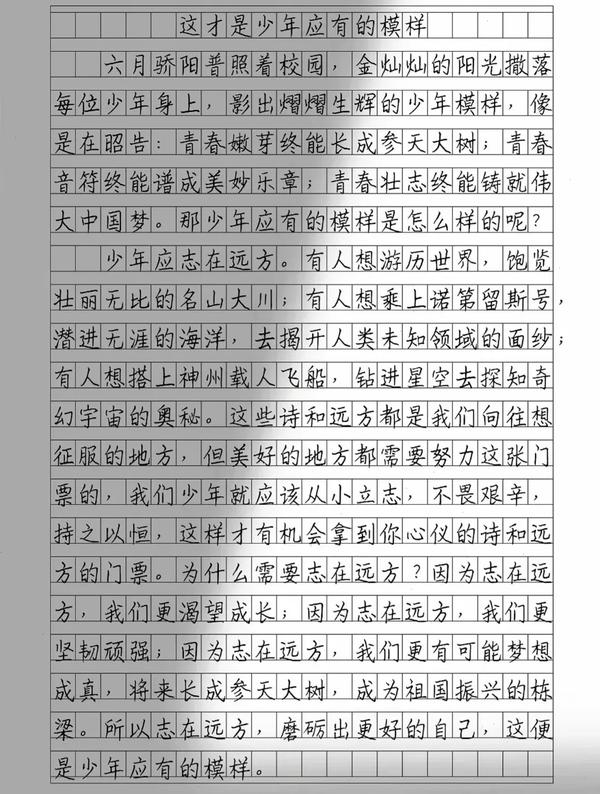 这才是少年应有的模样
六月骄阳普照着校园，金灿灿的阳光撒落
每位少年身上，影出熠熠生辉的少年模样，像
是在昭告：青春嫩芽终能长成参天大树；青春
音符终能谱成美妙乐章；青春壮志终能铸就伟
大中国梦。那少年应有的模样是怎么样的呢？
少年应志在远方。有人想游历世界，饱览
壮丽无比的名山大川；有人想乘上诺第留斯号，
潜进无涯的海洋，去揭开人类未知领域的面纱；
有人想搭上神州载人飞船，钻进星空去探知奇
幻宇宙的奥秘。这些诗和远方都是我们向往想
征服的地方，但美好的地方都需要努力这张门
票的，我们少年就应该从小立志，不畏艰辛，
持之以恒，这样才有机会拿到你心仪的诗和远
方的门票。为什么需要志在远方？因为志在远
方，我们更渴望成长；因为志在远方，我们更
坚韧顽强；因为志在远方，我们更有可能梦想
成真，将来长成参天大树，成为祖国振兴的栋
梁。所以志在远方，磨砺出更好的自己，这便
是少年应有的模样。